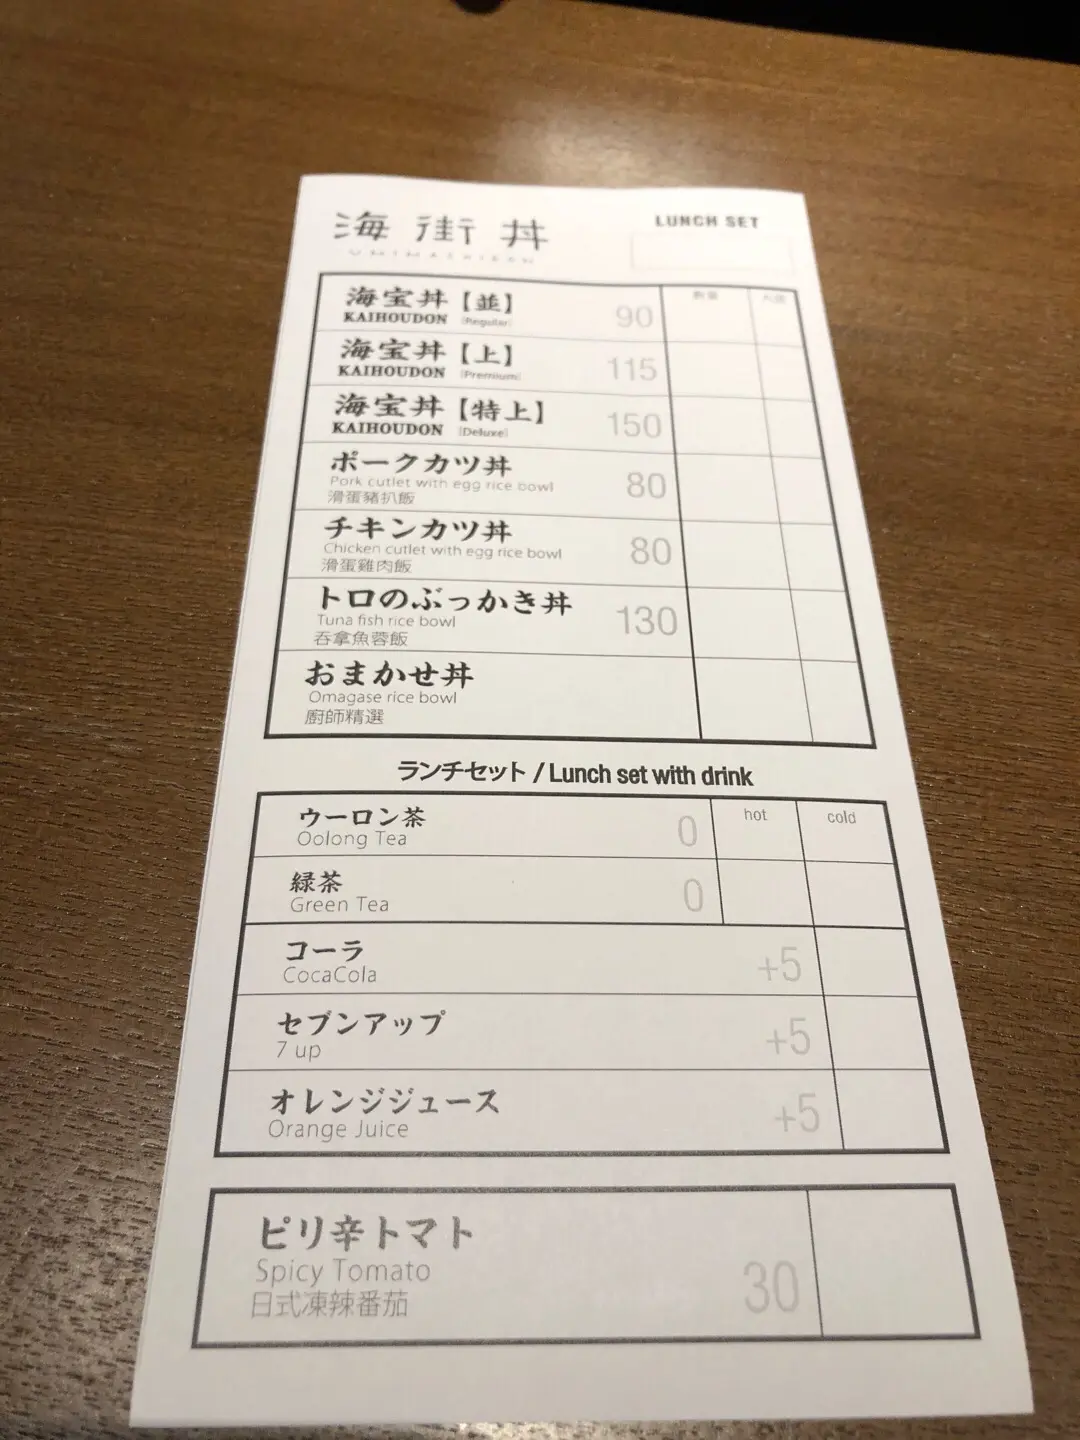 海街丼
UMIMACHIDON
LUNCH SET
数量
海宝丼【並】
KAIHOUDON (Regular)
90
海宝丼【上】
KAIHOUDON (Premium)
115
海宝丼【特上】
KAIHOUDON (Deluxe)
150
ポークカツ丼
Pork cutlet with egg rice bowl
滑蛋豬扒飯
80
チキンカツ丼
Chicken cutlet with egg rice bowl
滑蛋雞肉飯
80
トロのぶっかき丼
Tuna fish rice bowl
吞拿魚蓉飯
130
おまかせ丼
Omagase rice bowl
廚師精選
ランチセット / Lunch set with drink
hot
cold
ウーロン茶
Oolong Tea
0
緑茶
Green Tea
0
コーラ
CocaCola
+5
セブンアップ
7 up
+5
オレンジジュース
Orange Juice
+5
ピリ辛トマト
Spicy Tomato
日式凍辣番茄
30